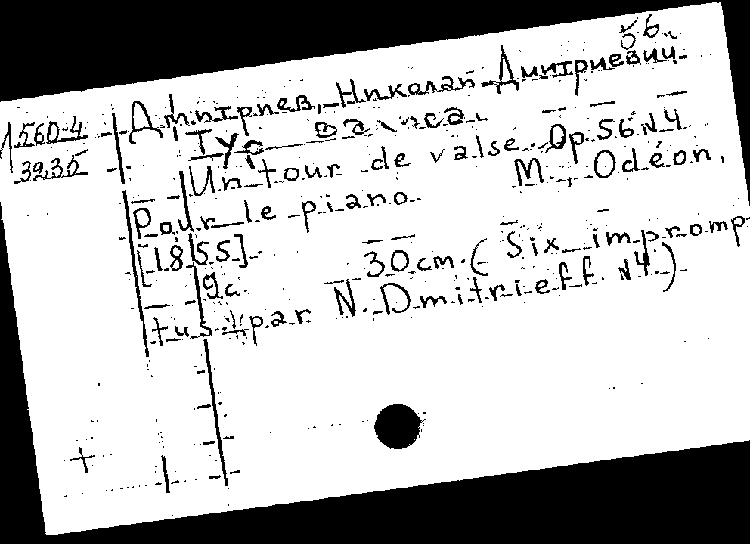 56.
560-4
3235
Дмитриев, Николай Дмитриевич
Тур вальса.
Un tour de valse. Op. 56 N 4
Pour le piano. M., Odéon,
[1855].
9 с. 30 cm. (Six impromp-
tus par N. Dmitrieff N 4.)